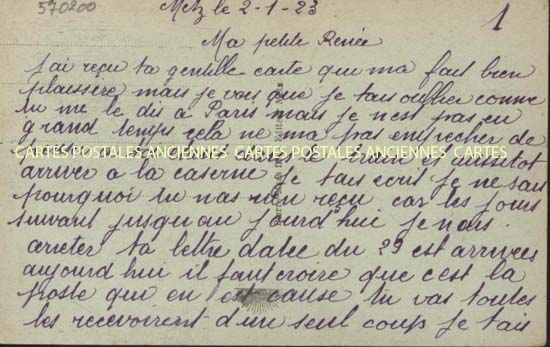 570200
Metz le 2-1-23
1
Ma petite Renée
J'ai reçu ta gentille carte que ma fait bien
plaissère mais je vois que je tais oublier comme
tu me le dis a Paris mais je n'est pas eu
grand temps cela ne ma pas empecher de
CARTES POSTALES ANCIENNES CARTES POSTALES ANCIENNES CARTES
arriver a la caserne je tais ecrit je ne sais
pourquoi tu nas rien reçu car les jours
suivant jusquau jourd'hui je nais
arreter ta lettre datée du 29 est arrivée
aujourd hui il faut croire que c'est la
poste qui en est cause tu vas toutes
les recevoirent d'un seul coup je tais